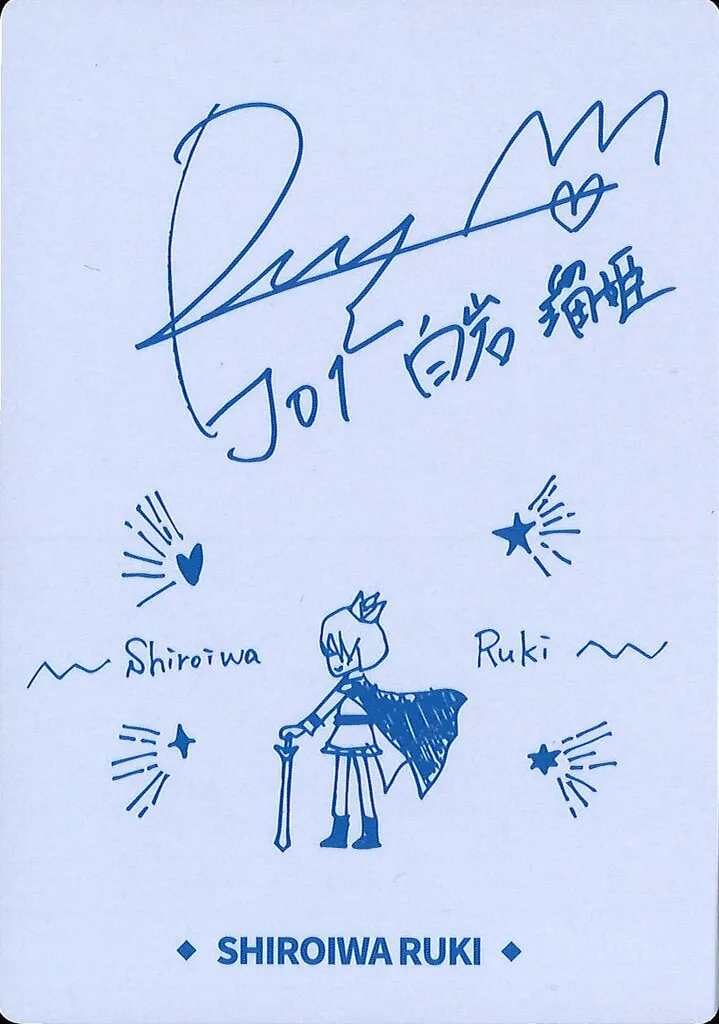 JO1 白岩 瑠姫
Shiroiwa Ruki
SHIROIWA RUKI